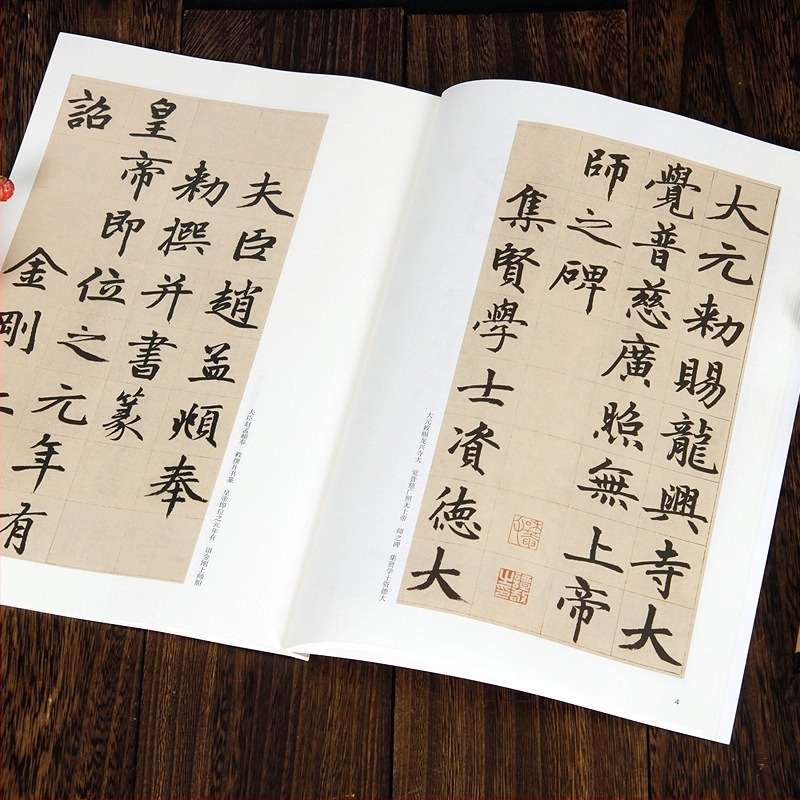 大元勑賜龍興寺大
覺普慈廣照無上帝
師之碑
集賢學士資德大
大元敕赐龙兴寺大 觉普慈广照无上帝 师之碑 集贤学士资德大
4
夫臣趙孟頫奉
勑撰并書篆
皇帝即位之元年有
詔金剛
夫臣赵孟頫奉 敕撰并书篆 皇帝即位之元年有 诏金刚上师胆